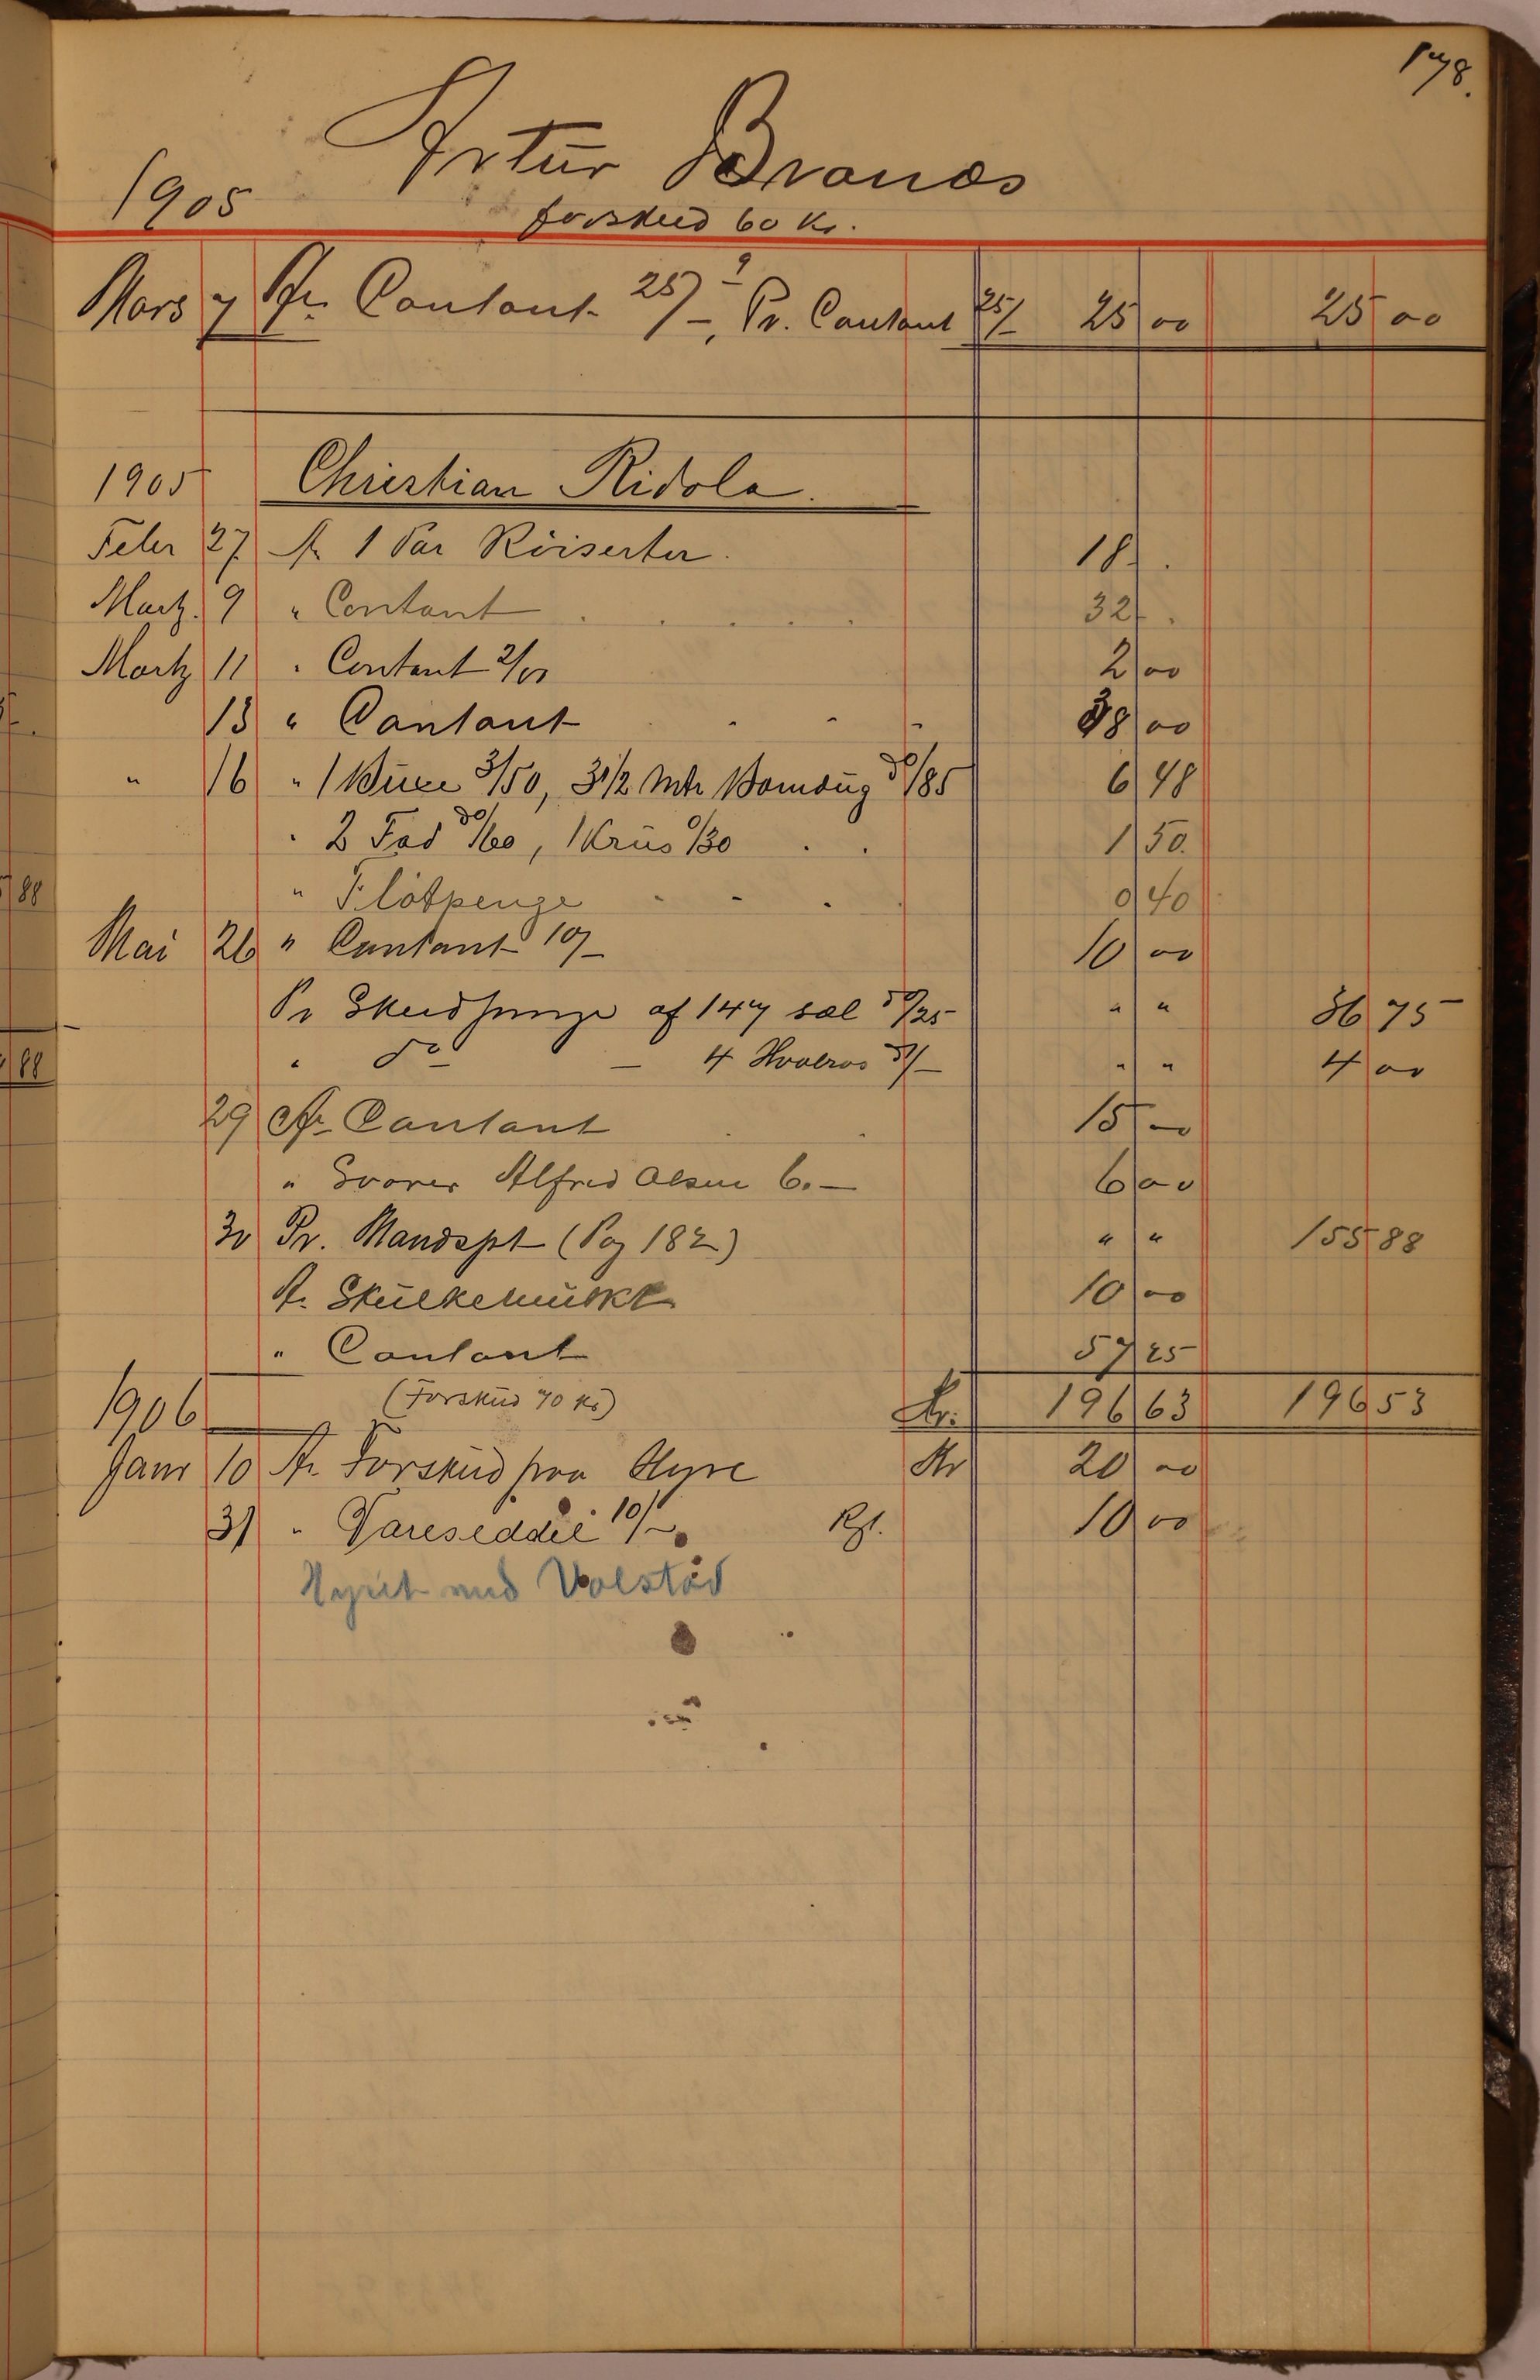 178.
Artur Brands
1905
forskud 60 Kr.
Mars 7 An Contant 25/-, Pr. Contant 25/- 25 00 25 00
1905 Christian Ridola.
Febr 27 An 1 Par Röiserter. 18 .
Martz. 9 " Contant . . . . . 32 .
Martz 11 " Contant 2/00 2 00
13 " Contant - - - 38 00
" 16 " 1 Buxe 3/50, 3 1/2 Mtr Bomdüg do/85 6 48
" 2 Fad do/60, 1 Krüs 0/30 . . 1 50
" Flötpenge - - . 0 40
Mai 26 " Contant 10/- 10 00
Pr Skudpenge af 147 sæl do/25 " " 36 75
" do - 4 Hvalros " " 4 00
29 An Contant 15 00
" Svarer Alfred Olsen 6.- 6 00
30 Pr. Mandspt (Pag 182) " " 155 88
An 10 00
" Contant 57 25
(Forskud 70 Kr) Kr. 196 63 196 53
1906
Janr 10 An Forskud paa Hyre Kr 20 00
31 " Vareseddel 10/- 10 00
Hyret med Volstad
88
88